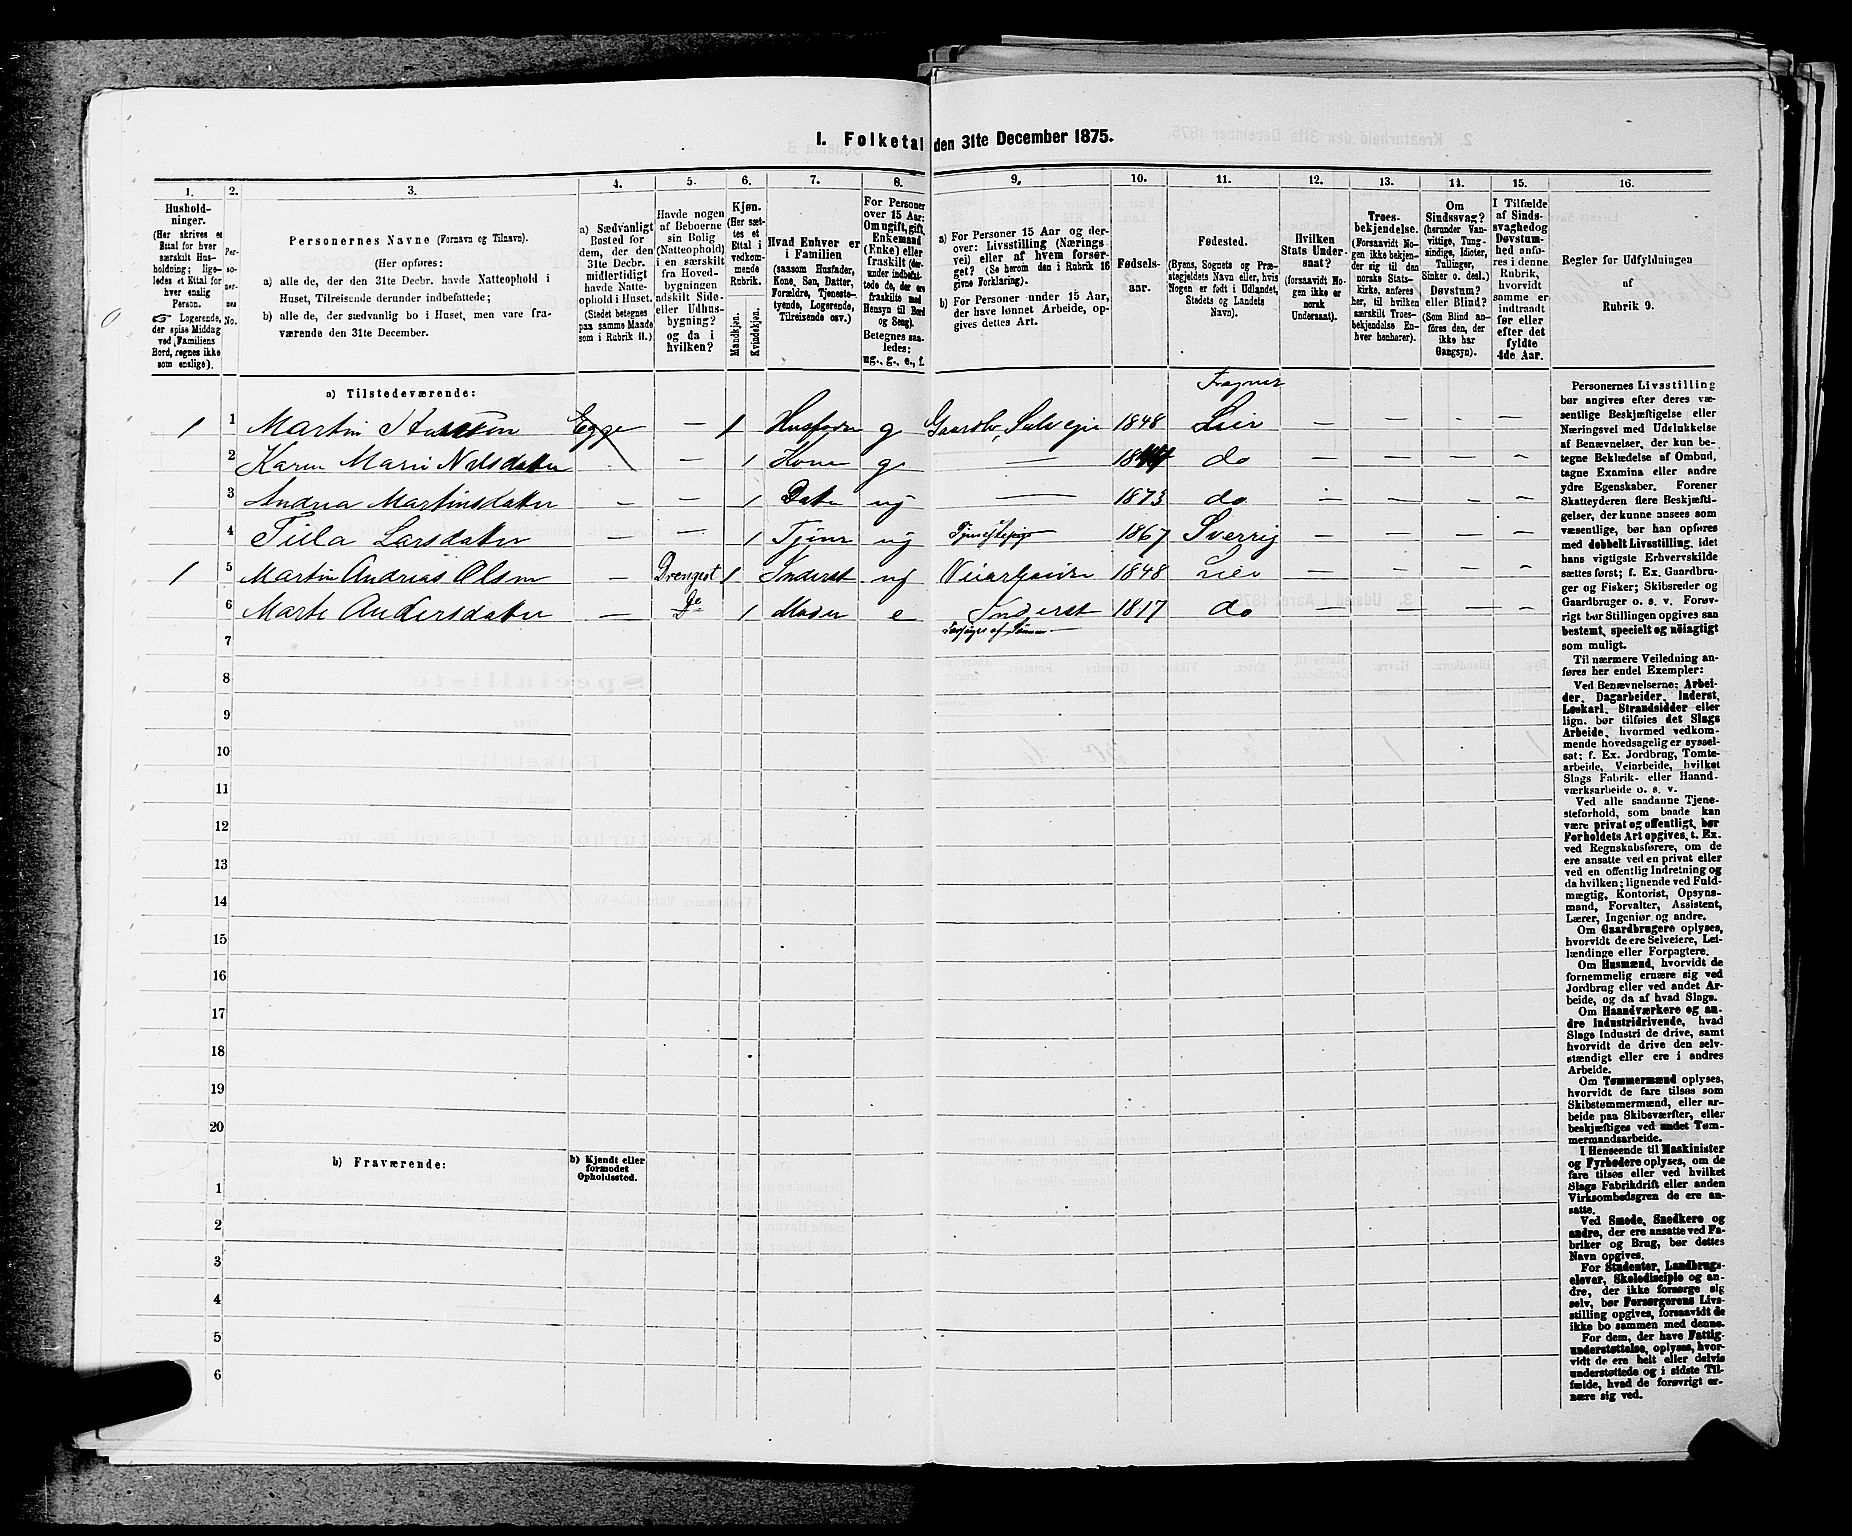 1. Folketal den 31te December 1875.
1. 2. 3. 4. 5. 6. 7. 8. 9. 10. 11. 12. 13. 14. 15. 16.
Husholdninger.
(Her skrives et Ettal for hver særskilt Husholdning; ligeledes et Ettal for hver enslig Person.
☞ Logerende, der spise Middag ved Familiens Bord, regnes ikke som enslige).
Personernes No.
Personernes Navne (Fornavn og Tilnavn).
(Her opføres:
a) alle de, der den 31te Decbr. havde Natteophold i Huset, Tilreisende derunder indbefattede;
b) alle de, der sædvanlig bo i Huset, men vare fraværende den 31te December.
a) Sædvanligt Bosted for dem, der den 31te Decbr. midlertidigt havde Natteophold i Huset. (Stedet betegnes paa samme Maade som i Rubrik 11.)
Havde nogen af Beboerne sin Bolig (Natteophold) i en særskilt fra Hovedbygningen adskilt Side- eller Udhusbygning? og da i hvilken?
Kjøn.
(Her sættes et Ettal i vedkommende Rubrik.
Mandkjøn.
Kvindekjøn.
Hvad Enhver er i Familien
(saasom Husfader, Kone, Søn, Datter, Forældre, Tjenestetyende, Logerende, Tilreisende osv.)
For Personer over 15 Aar: Om ugift, gift, Enkemand (Enke) eller fraskilt (derunder indbefattede de, der ere fraskilte med Hensyn til Bord og Seng).
Betegnes saaledes:
ug., g., e., f.
a) For Personer 15 Aar og derover: Livsstilling (Næringsvei) eller af hvem forsørget? (Se herom den i Rubrik 16 givne Forklaring).
b) For Personer under 15 Aar, der have lønnet Arbeide, opgives dettes Art.
Fødselsaar.
Fødested.
(Byens, Sognets og Præstegjeldets Navn eller, hvis Nogen er født i Udlandet, Stedets og Landets Navn).
Hvilken Stats Undersaat?
(forsaavidt Nogen ikke er norsk Undersaat).
Troesbekjendelse.
(Forsaavidt Nogen ikke bekjender sig til den norske Statskirke, anføres her, til hvilken særskilt Troesbekjendelse Enhver henhører).
Om Sindssvag? (herunder Vanvittige, Tungsindige, Idioter, Tullinger, Sinker o. desl.) Døvstum? eller Blind? (Som Blind anføres den, der ikke har Gangsyn).
I Tilfælde af Sindssvaghed og Døvstumhed anføres i denne Rubrik, hvorvidt samme er indtraadt før eller efter det fyldte 4de Aar.
Regler for Udfyldningen af Rubrik 9.
a) Tilstedeværende:
Fragner
1 1 Martin Egge — 1 Husfader g Gaardb, Selvejer 1848 Lier — — — —
2 Karen Marie Nilsdatter — 1 Kone g — do — — — —
3 Andrea Martinsdatter — — 1 Dater ug — 1873 do — — — —
4 Larsdatter — — 1 Tjener ug 1867 Sverrig — — — —
1 5 Martin Andrias Olsen — Drengest 1 Inderst ug Veiarbeider 1848 Lier — — — —
6 Marte Andersdatter — Do 1 Moder e Inderst 1817 do — — — —
Forsørges af Sønnen
7
8
9
10
11
12
13
14
15
16
17
18
19
20
b) Fraværende:
b) Kjendt eller formodet Opholdssted.
1
2
3
4
5
6
Personernes Livsstilling
bør angives efter deres væ-
sentlige Beskjæftigelse eller
Næringsvei med Udelukkelse
af Benævnelser, der kun be-
tegne Beklædelse af Ombud,
tagne Examina eller andre
ydre Egenskaber. Forener
Skatteyderen flere Beskjæfti-
gelser, der kunne ansees som
væsentlige, bør han opføres
med dobbelt Livsstilling, idet
hans vigtigste Erhvervskilde
sættes først; f. Ex. Gaardbru-
ger og Fisker; Skibsreder og
Gaardbruger o. s. v. Forøv-
rigt bør Stillingen opgives saa
bestemt, specielt og nöiagtigt
som muligt.
Til nærmere Veiledning an-
føres her endel Exempler:
Ved Benævnelserne: Arbei-
der, Dagarbeider, Inderst,
Løskarl, Strandsidder eller
lign. bør tilføies det Slags
Arbeide, hvormed vedkom-
mende hovedsagelig er syssel-
sat; f. Ex. Jordbrug, Tomte-
arbeide, Veiarbeide, hvilket
Slags Fabrik- eller Haand-
værksarbeide o. s. v.
Ved alle saadanne Tjene-
steforhold, som baade kan
være privat og offentligt, bør
Forholdets Art opgives, t. Ex.
ved Regnskabsførere, om de
ere ansatte ved en privat eller
ved en offentlig Indretning og
da hvilken; lignende ved Fuld-
mægtig, Kontorist, Opsyns-
mand, Forvalter, Assistent,
Lærer, Ingeniør og andre.
Om Gaardbrugere oplyses,
hvorvidt de ere Selveiere, Lei-
lændinge eller Forpagtere.
Om Husmænd, hvorvidt de
fornemmelig ernære sig ved
Jordbrug eller ved andet Ar-
beide, og da af hvad Slags.
Om Haandværkere og an-
dre Industridrivende, hvad
Slags Industri de drive, samt
hvorvidt de drive den selv-
stændigt eller ere i andres
Arbeide.
Om Tømmermænd oplyses,
hvorvidt de fare tilsøs som
Skibstømmermænd, eller ar-
beide paa Skibsværfter, eller
beskjæftiges ved andet Tøm-
mermandsarbeide.
I Henseende til Maskinister
og Fyrbødere oplyses, om de
fare tilsøs eller ved hvilket
Slags Fabrikdrift eller anden
Virksombedsgren de ere an-
satte.
Ved Smede, Snedkere og
andre, der ere ansatte ved Fa-
briker og Brug, bør dettes
Navn opgives.
For Studenter, Landbrugs-
elever, Skoledisciple og an-
dre, der ikke forsørge sig
selv, bør Forsørgerens Livs-
stilling opgives, forsaavidt de
ikke bo sammen med denne.
For dem, der have Fattig-
understøttelse, oplyses, hvor-
vidt de ere helt eller delvis
understøttede og i sidste Til-
fælde, hvad de forøvrigt er-
nære sig ved.